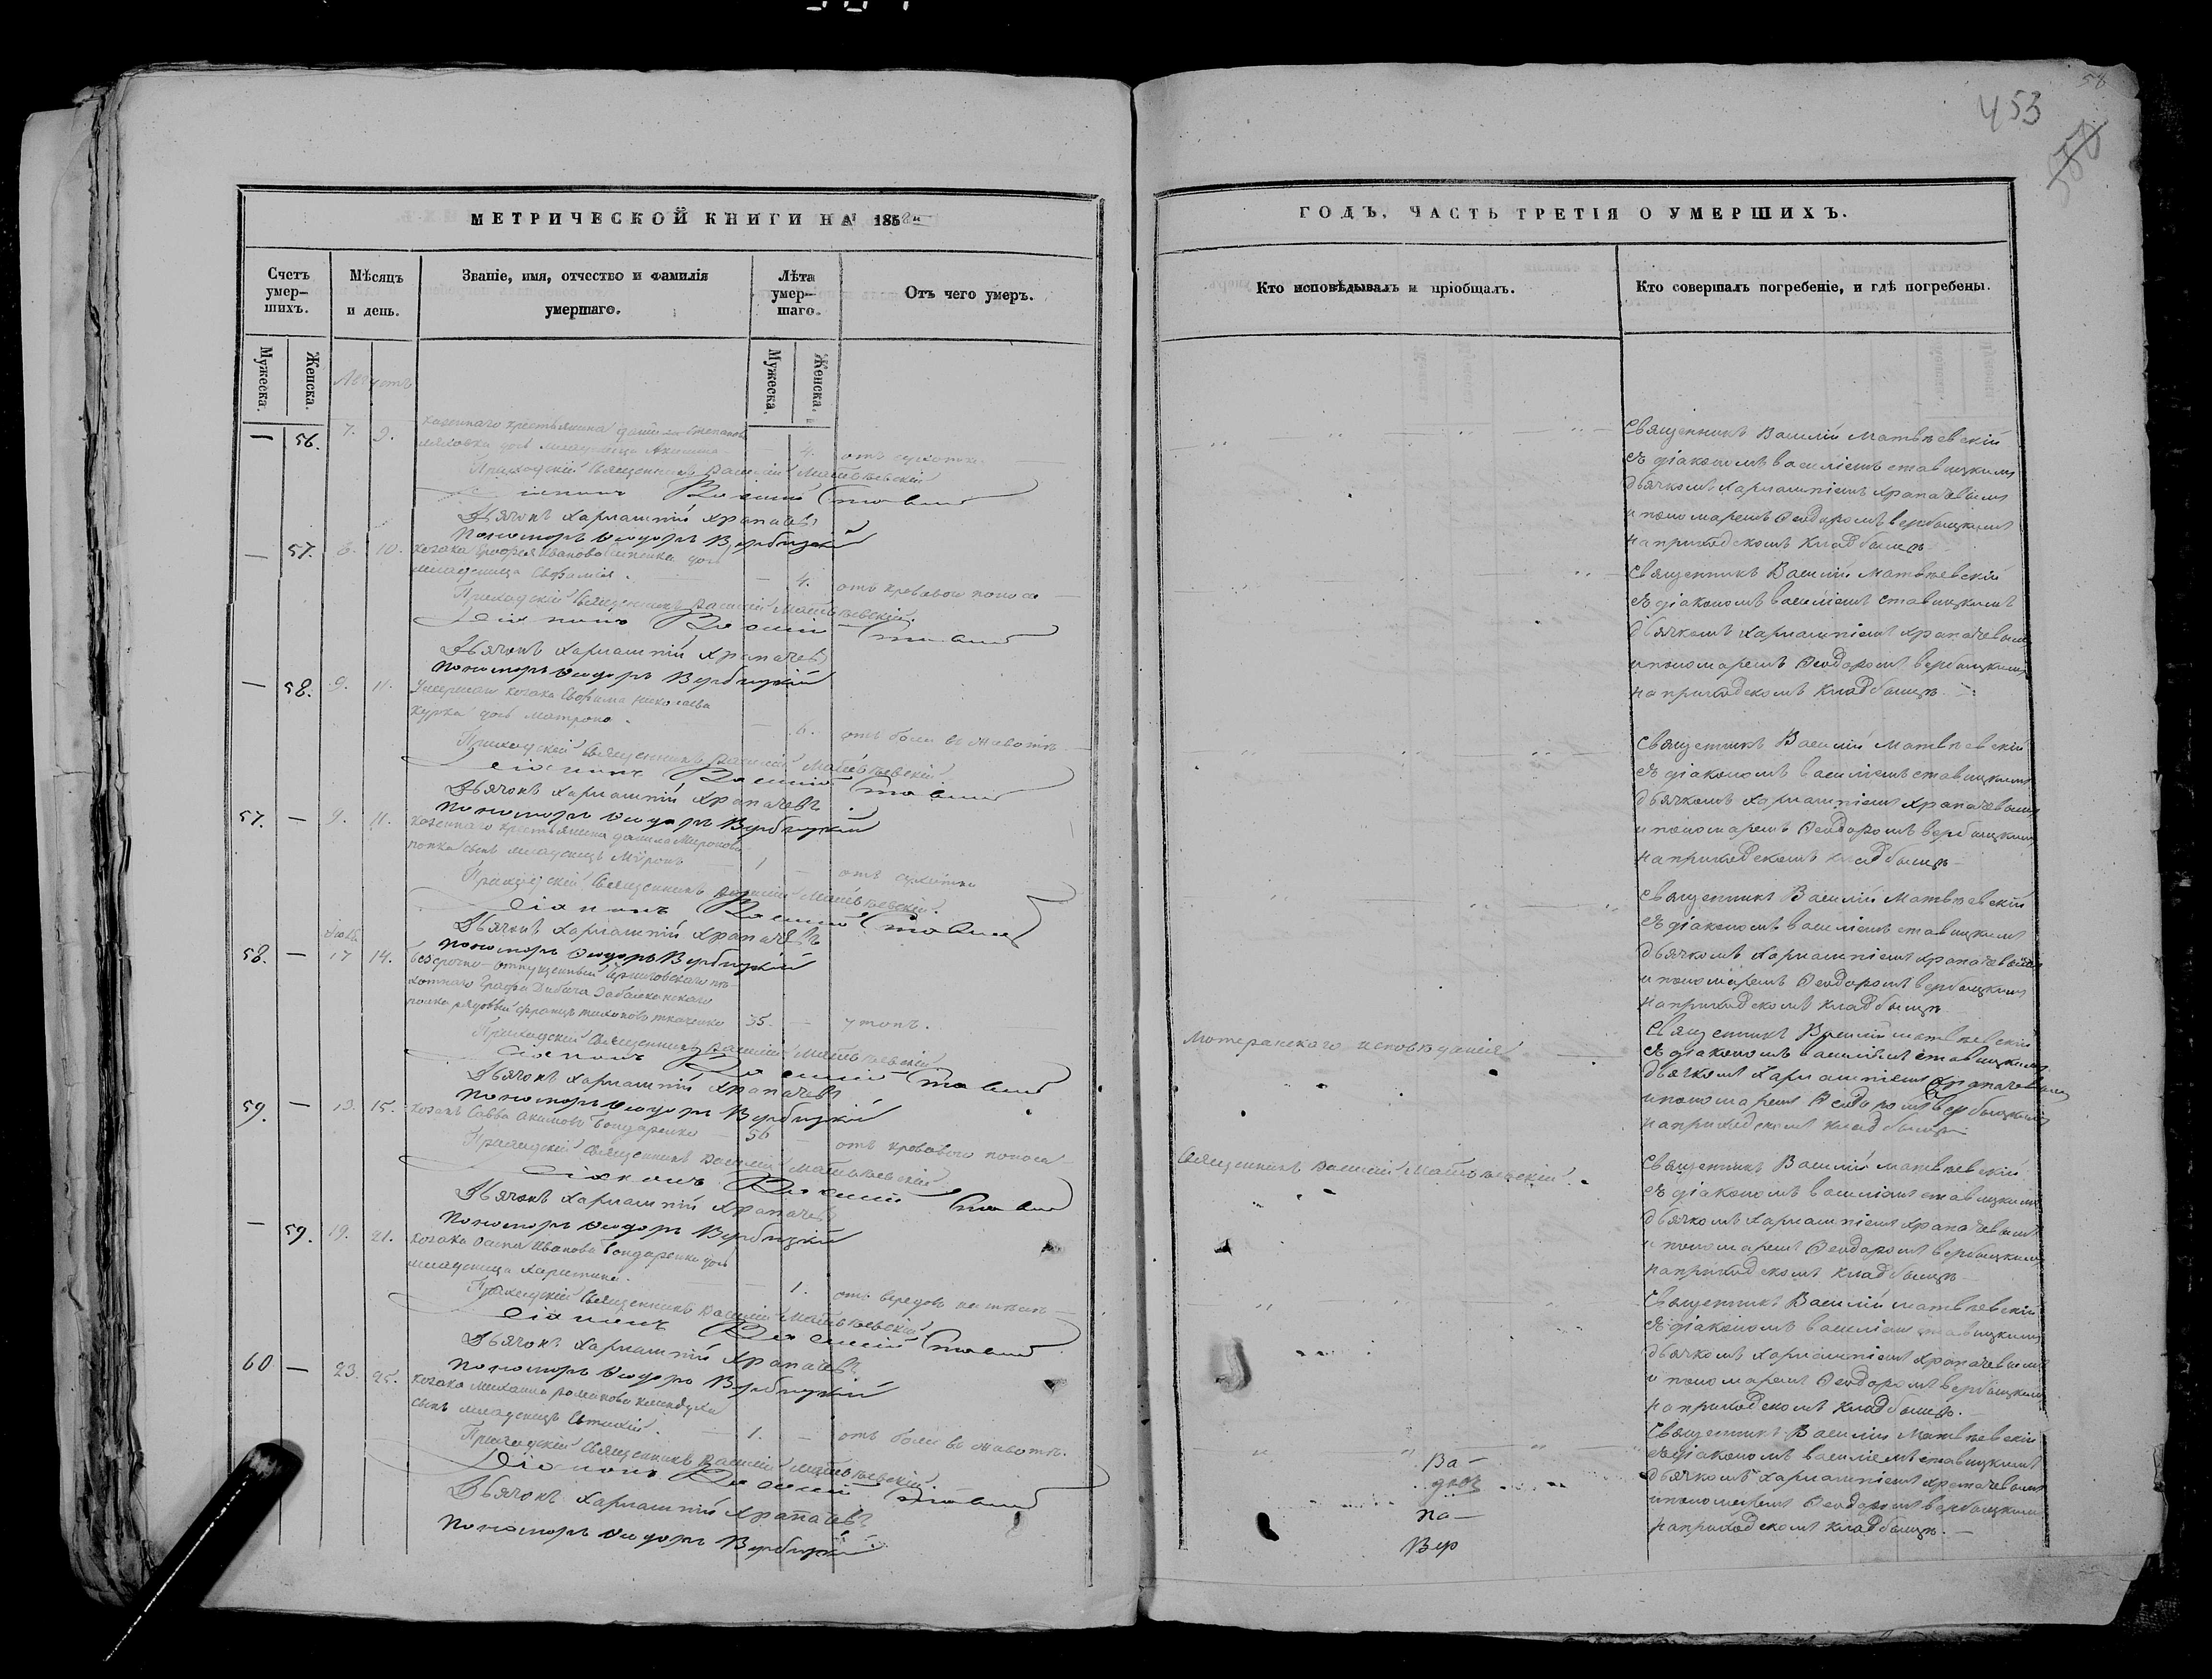 453
58
МЕТРИЧЕСКОЙ КНИГИ НА 1858й
Счетъ умер-шихъ.
Мѣсяцъ и день.
Званіе, имя, отчество и фамилія умершаго.
Лѣта умер-шаго.
Отъ чего умеръ.
Мужеска.
Женска.
Мужеска.
Женска.
Августъ
— 56. 7. 9. казеннаго крестьянина
дочь младеница — 4. отъ сухотки
Приходскій Священникъ Василій Матвѣевскій
Діаконъ Василій
Дьячокъ Харлампій Храпачевъ
Пономарь Ѳеодоръ Вербицкій
— 57. 8. 10. козака Иванова дочь
младеница Евфимія. — 4. отъ кроваваго поноса
Приходскій Священникъ Василій Матвѣевскій.
Діаконъ Василій
Дьячокъ Харлампій Храпачевъ
Пономарь Ѳеодоръ Вербицкій
— 58. 9. 11. Умершаго козака Евфима Николаева
Курка дочь Матрона. — 6. отъ боли въ животѣ
Приходскій Священникъ Василій Матвѣевскій.
Діаконъ Василій
Дьячокъ Харлампій Храпачевъ
Пономарь Ѳеодоръ Вербицкій
57. — 9. 11. казеннаго крестьянина Данила Миронова
сынъ младенецъ Мѵронъ 1 — отъ сухотки
Приходскій Священникъ Василій Матвѣевскій.
Діаконъ Василій
Дьячокъ Харлампій Храпачевъ
Пономарь Ѳеодоръ Вербицкій
58. — 17 14. безсрочно-отпущенный Черниговскаго пѣ-
хотнаго Графа Дибича Забалканскаго
полка рядовый Ткаченко 35. — утопъ.
Приходскій Священникъ Василій Матвѣевскій
Діаконъ Василій
Дьячокъ Харлампій Храпачевъ
Пономарь Ѳеодоръ Вербицкій
59. — 13. 15. козакъ Савва Акимовъ Бондаренко 56 — отъ кроваваго поноса
Приходскій Священникъ Василій Матвѣевскій
Діаконъ Василій
Дьячокъ Харлампій Храпачевъ
Пономарь Ѳеодоръ Вербицкій
— 59. 19. 21. козака Осипа Иванова Бондаренка дочь
младеница Харитина. — 1. отъ вередовъ на тѣлѣ
Приходскій Священникъ Василій Матвѣевскій
Діаконъ Василій
Дьячокъ Харлампій Храпачевъ
Пономарь Ѳеодоръ Вербицкій
60 — 23. 25. козака Михаила Романова
сынъ младенецъ Евтихій. 1. — отъ боли въ животѣ.
Приходскій Священникъ Василій Матвѣевскій.
Діаконъ Василій
Дьячокъ Харлампій Храпачевъ
Пономарь Ѳеодоръ Вербицкій
ГОДЪ, ЧАСТЬ ТРЕТІЯ О УМЕРШИХЪ.
Кто исповѣдывалъ и пріобщалъ.
Кто совершалъ погребеніе, и гдѣ погребены.
Священникъ Василій Матвѣевскій
съ діакономъ Василіемъ Ставицкимъ
дьячкомъ Харлампіемъ Храпачевымъ
и пономаремъ Ѳеодоромъ Вербицкимъ
на приходскомъ кладбищѣ
Священникъ Василій Матвѣевскій
съ діакономъ Василіемъ Ставицкимъ
дьячкомъ Харлампіемъ Храпачевымъ
и пономаремъ Ѳеодоромъ Вербицкимъ
на приходскомъ кладбищѣ
Священникъ Василій Матвѣевскій
съ діакономъ Василіемъ Ставицкимъ
дьячкомъ Харлампіемъ Храпачевымъ
и пономаремъ Ѳеодоромъ Вербицкимъ
на приходскомъ кладбищѣ
Священникъ Василій Матвѣевскій
съ діакономъ Василіемъ Ставицкимъ
дьячкомъ Харлампіемъ Храпачевымъ
и пономаремъ Ѳеодоромъ Вербицкимъ
на приходскомъ кладбищѣ
Лютеранскаго исповѣданія
Священникъ Василій Матвѣевскій
съ діакономъ Василіемъ Ставицкимъ
дьячкомъ Харлампіемъ Храпачевымъ
и пономаремъ Ѳеодоромъ Вербицкимъ
на приходскомъ кладбищѣ
Священникъ Василій Матвѣевскій.
Священникъ Василій Матвѣевскій
съ діакономъ Василіемъ Ставицкимъ
дьячкомъ Харлампіемъ Храпачевымъ
и пономаремъ Ѳеодоромъ Вербицкимъ
на приходскомъ кладбищѣ
Священникъ Василій Матвѣевскій
съ діакономъ Василіемъ Ставицкимъ
дьячкомъ Харлампіемъ Храпачевымъ
и пономаремъ Ѳеодоромъ Вербицкимъ
на приходскомъ кладбищѣ.
Священникъ Василій Матвѣевскій
съ діакономъ Василіемъ Ставицкимъ
дьячкомъ Харлампіемъ Храпачевымъ
и пономаремъ Ѳеодоромъ Вербицкимъ
на приходскомъ кладбищѣ.
Ва—
па—
Вер